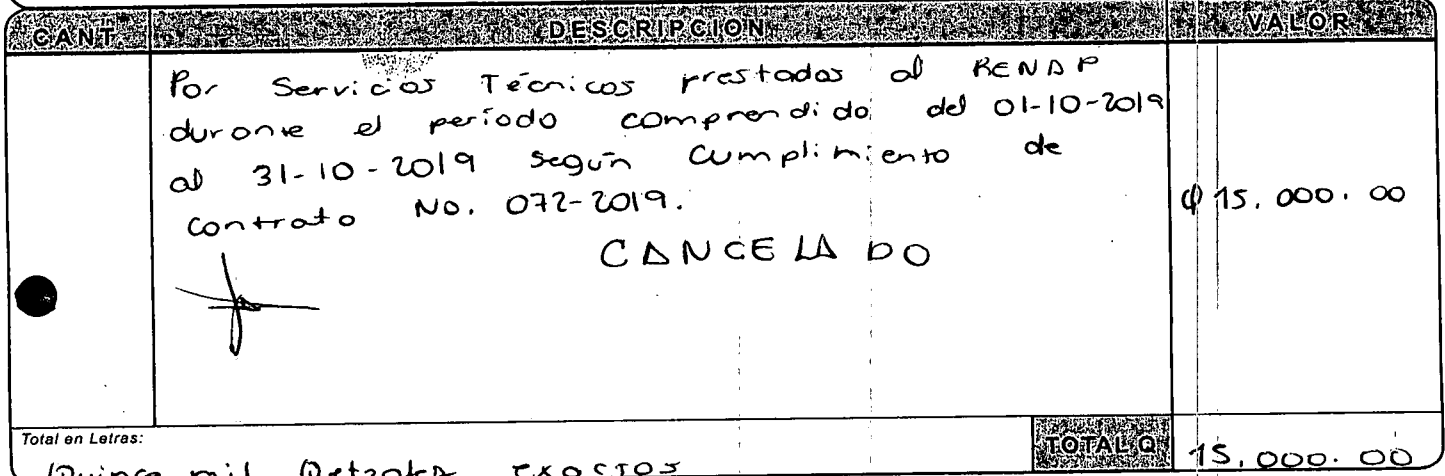 CANT. DESCRIPCION VALOR
Por Servicios Técnicos prestados al RENAP
durante el período comprendido del 01-10-2019
al 31-10-2019 según Cumplimiento de
contrato No. 072-2019. Q 15,000.00
CANCELADO
Total en Letras: TOTAL Q 15,000.00
Quince mil Quetzales exactos